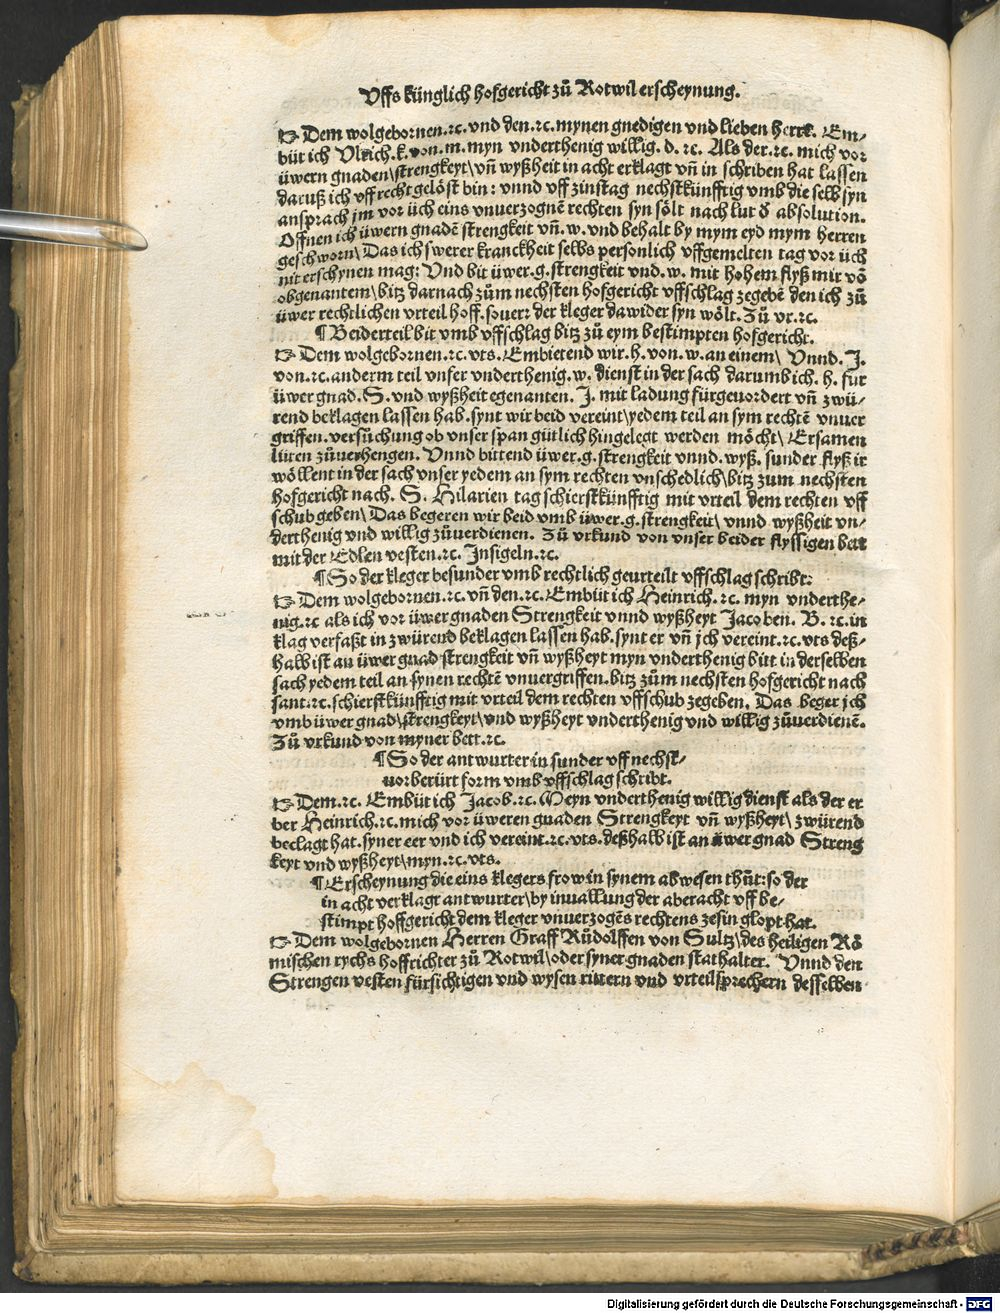 Uffs künglich hofgericht zů Rotwil erscheynung.
☞ Dem wolgebornen.ꝛc. vnd den.ꝛc. mynen gnedigen vnd lieben herrē. Em-
büt ich Vlrich.k. von. m. myn vnderthenig willig. d. ꝛc. Als der.ꝛc. mich vor
üwern gnaden\strengkeyt\vñ wyßheit in acht erklagt vñ in schriben hat lassen
daruß ich vff recht gelöst bin: vnnd vff zinstag nechstkünfftig vmb die selb syn
ansprach jm vor üch eins vnuerzognē rechten syn sölt nach lut d̓ absolution.
Offnen ich üwern gnadē strengkeit vñ. w. vnd behalt by mym eyd mym herren
geschworn\ Das ich swerer kranckheit selbs personlich vffgemelten tag vor üch
nit erschynen mag: Vnd bit üwer.g. strengkeit vnd. w. mit hohem flyß mir vō
obgenantem\bitz darnach zům nechsten hofgericht vffschlag zegebē den ich zů
üwer rechtlichen vrteil hoff. souerr der kleger dawider syn wölt. Zů vr.ꝛc.
¶ Beiderteil bit vmb vffschlag bitz zů eym bestimpten hofgericht.
☞ Dem wolgebornen.ꝛc. vts. Embietend wir. h. von. w. an einem\ Vnnd. J.
von.ꝛc. anderm teil vnser vnderthenig. w. dienst in der sach darumb ich. h. für
üwer gnad. S. vnd wyßheit egenanten. J. mit ladung fürgeuordert vñ zwü-
rend beklagen lassen hab. synt wir beid vereint\yedem teil an sym rechtē vnuer
griffen. versůchung ob vnser span gütlich hingelegt werden möcht\ Ersamen
lüten zůuerhengen. Vnnd bittend üwer.g. strengkeit vnnd. wyß. sunder flyß ir
wöllent in der sach vnser yedem an sym rechten vnschedlich\bitz zum nechsten
hofgericht nach. S. Hilarien tag schierstkünfftig mit vrteil dem rechten vff
schub geben\ Das begeren wir beid vmb üwer.g. strengkeit\ vnnd wyßheit vn-
derthenig vnd willig zůuerdienen. Zů vrkund von vnser beider flyssigen bett
mit der Edlen vesten.ꝛc. Insigeln.ꝛc.
¶ So der kleger besunder vmb rechtlich geurteilt vffschlag schribt:
☞ Dem wolgebornen.ꝛc. vñ den.ꝛc. Embüt ich Heinrich.ꝛc. myn vnderthe-
nig.ꝛc als ich vor üwer gnaden Strengkeit vnnd wyßheyt Jacoben. B. ꝛc. in
klag verfaßt in zwürend beklagen lassen hab. synt er vñ jch vereint.ꝛc. vts deß-
halb ist an üwer gnad strengkeit vñ wyßheyt myn vnderthenig bitt in derselben
sach yedem teil an synen rechtē vnuergriffen. bitz zům nechsten hofgericht nach
sant.ꝛc. schierstkünfftig mit vrteil dem rechten vffschub zegeben. Das beger jch
vmb üwer gnad\strengkeyt\vnd wyßheyt vnderthenig vnd willig zůuerdienē.
Zů vrkund von myner bett.ꝛc.
¶ So der antwurter in sunder vff nechst-
uorberürt form vmb vffschlag schribt.
☞ Dem.ꝛc. Embüt ich Jacob.ꝛc. Meyn vnderthenig willig dienst als der er
ber Heinrich.ꝛc. mich vor üweren gnaden Strengkeyt vñ wyßheyt\ zwürend
beclagt hat. syner eer vnd ich vereint.ꝛc. vts. deßhalb ist an üwer gnad Streng
keyt vnd wyßheyt\myn.ꝛc. vts.
¶ Erscheynung die eins klegers frow in synem abwesen thůt: so der
in acht verklagt antwurter\by inuallung der aberacht vff be-
stimpt hoffgericht dem kleger vnuerzogēs rechtens zesin glopt hat.
☞ Dem wolgebornen Herren Graff Růdolffen von Sultz\des heiligen Rö
mischen rychs hoffrichter zů Rotwil\oder syner gnaden stathalter. Vnnd den
Strengen vesten fürsichtigen vnd wysen rittern vnd vrteilsprechern desselben
Digitalisierung gefördert durch die Deutsche Forschungsgemeinschaft - DFG